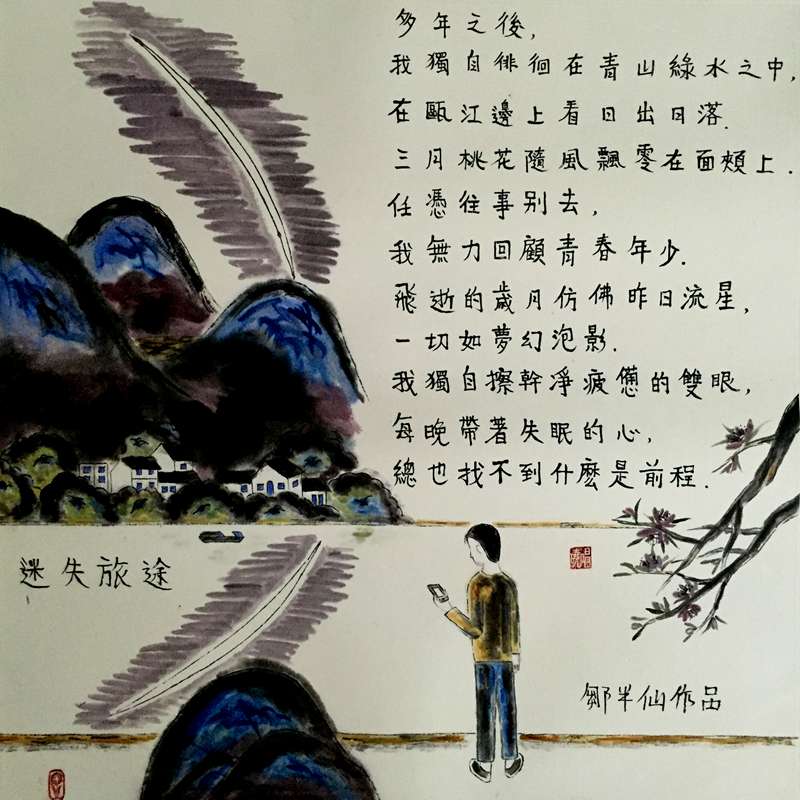 多年之後，
我獨自徘徊在青山綠水之中，
在甌江邊上看日出日落.
三月桃花隨風飄零在面頰上.
任憑往事別去，
我無力回顧青春年少.
飛逝的歲月仿佛昨日流星，
一切如夢幻泡影.
我獨自擦幹淨疲憊的雙眼，
每晚帶著失眠的心，
總也找不到什麽是前程.
迷失旅途
鄒半仙作品